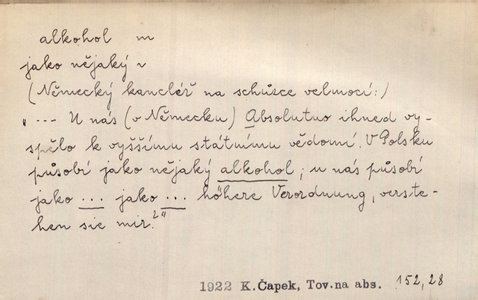 alkohol m
jako nějaký ~
(Německý kancléř na schůzce velmocí:)
„ --- U nás (v Německu) Absolutno ihned vy-
spělo k vyššímu státnímu vědomí. V Polsku
působí jako nějaký alkohol; u nás působí
jako ... jako ... höhere Verordnung, verste-
hen sie mir."
1922 K.Čapek, Tov.na abs. 152,28